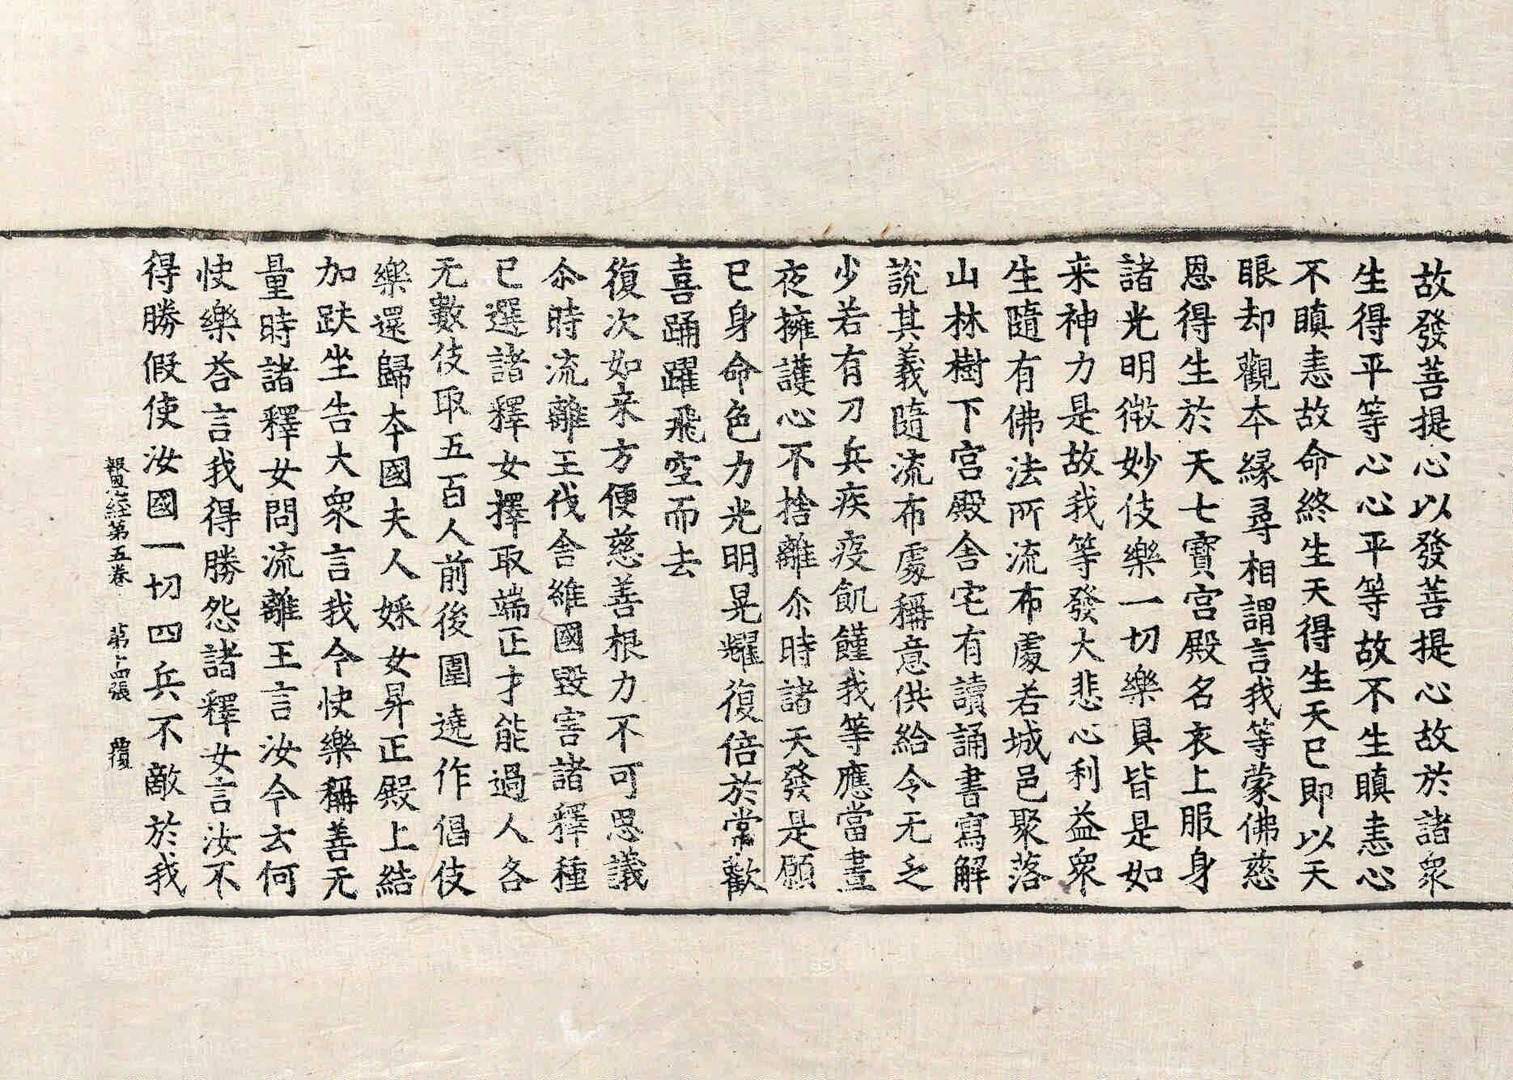 故發菩提心以發菩提心故於諸衆
生得平等心心平等故不生瞋恚心
不瞋恚故命終生天得生天已即以天
眼却觀本縁尋相謂言我等蒙佛慈
恩得生於天七寶宮殿名衣上服身
諸光明微妙伎樂一切樂具皆是如
来神力是故我等發大悲心利益衆
生隨有佛法所流布處若城邑聚落
山林樹下宮殿舍宅有讀誦書寫解
說其義隨流布處稱意供給令无乏
少若有刀兵疾疫飢饉我等應當晝
夜擁護心不捨離尒時諸天發是願
已身命色力光明晃耀復倍於常歡
喜踊躍飛空而去
復次如来方便慈善根力不可思議
尒時流離王伐舍維國毀害諸釋種
已選諸釋女擇取端正才能過人各
无數伎取五百人前後圍遶作倡伎
樂還歸本國夫人婇女昇正殿上結
加趺坐告大衆言我今快樂稱善无
量時諸釋女問流離王言汝今云何
快樂荅言我得勝怨諸釋女言汝不
得勝假使汝國一切四兵不敵於我
報恩經第五卷　第十四張　覆